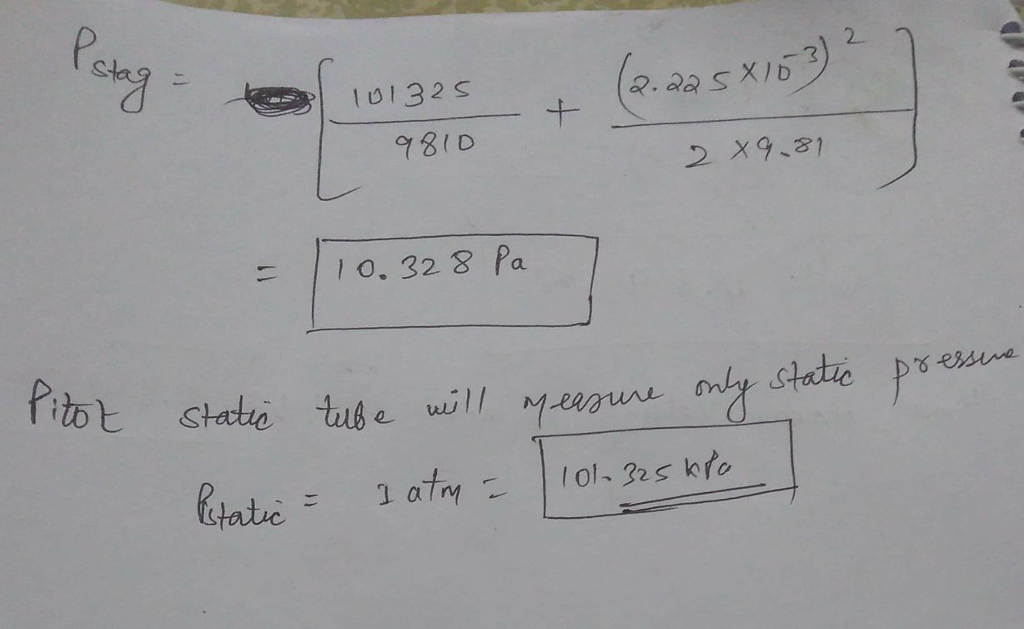 Pstag = [ 101325 / 9810 + (2.225 × 10⁻³)² / 2 × 9.81 ]
= 10.328 Pa
Pitot static tube will measure only static pressure
Pstatic = 1 atm = 101.325 kPa